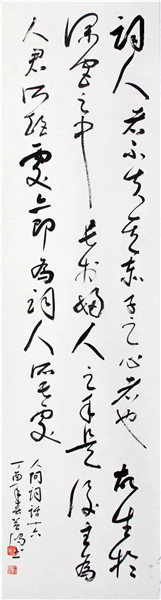 詞人者不失其赤子之心者也故生於
深宮之中長於婦人之手是後主為
人君所短處亦即為詞人所長處
人間詞話十六
丁酉年